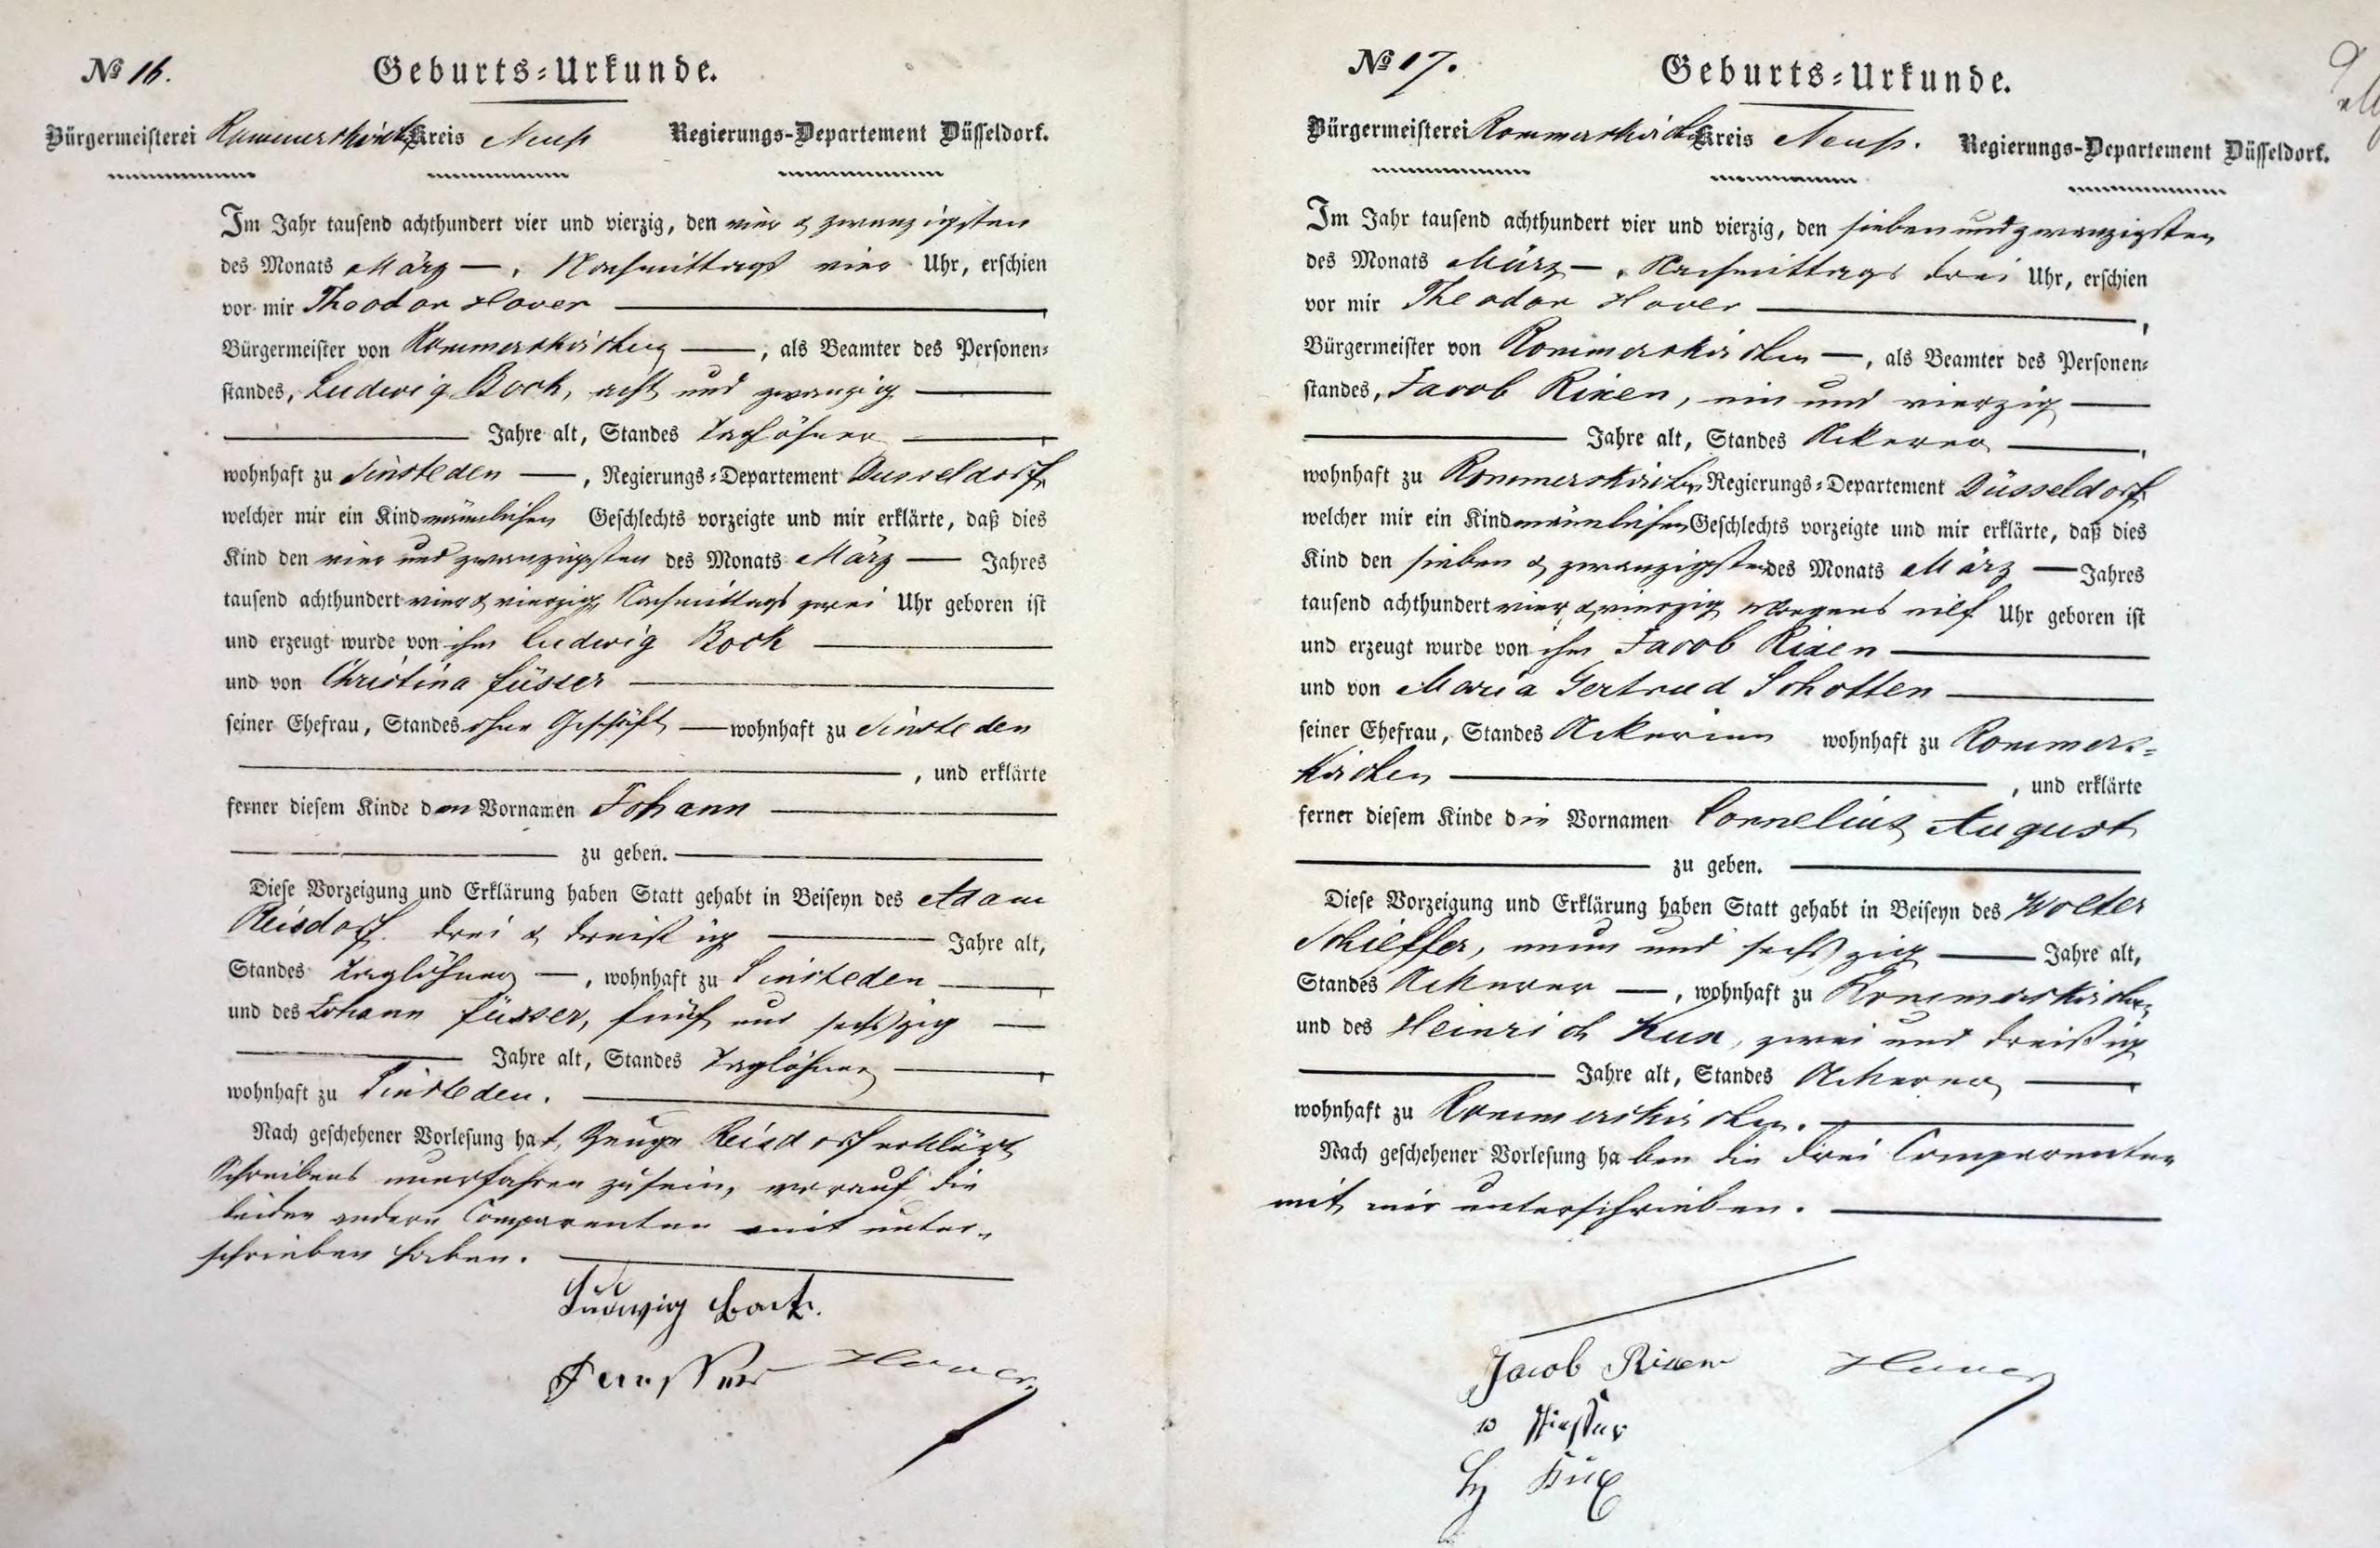 № 16.
Geburts-Urkunde.
Bürgermeisterei Rommerskirchen Kreis Neuß Regierungs-Departement Düsseldorf.
Im Jahr tausend achthundert vier und vierzig, den vier & zwanzigsten
des Monats März —, Nachmittags vier Uhr, erschien
vor mir Theodor Hover
Bürgermeister von Rommerskirchen —, als Beamter des Personen-
standes, Ludwig Bock, acht und zwanzig
Jahre alt, Standes Taglöhner
wohnhaft zu Sinsteden —, Regierungs-Departement Dusseldorf,
welcher mir ein Kind männlichen Geschlechts vorzeigte und mir erklärte, daß dies
Kind den vier und zwanzigsten des Monats März — Jahres
tausend achthundert vier & vierzig, Nachmittags zwei Uhr geboren ist
und erzeugt wurde von ihm Ludwig Bock
und von Christina Füsser
seiner Ehefrau, Standes ohne Geschäft — wohnhaft zu Sinsteden
, und erklärte
ferner diesem Kinde den Vornamen Johann
zu geben.
Diese Vorzeigung und Erklärung haben Statt gehabt in Beiseyn des Adam
Reisdorf. drei & dreißig — Jahre alt,
Standes Taglöhner —, wohnhaft zu Sinsteden
und des Johann Füsser, fünf und sechszig —
Jahre alt, Standes Taglöhner
wohnhaft zu Sinsteden.
Nach geschehener Vorlesung hat, Zeuge Reisdorf erklärt
Schreibens unerfahren zu sein, worauf die
beiden andern Comparenten mit unter-
schrieben haben.
Ludwig Bock.
Fuesser Hover
№ 17.
Geburts-Urkunde.
Bürgermeisterei Rommerskirchen Kreis Neuß. Regierungs-Departement Düsseldorf.
Im Jahr tausend achthundert vier und vierzig, den sieben und zwanzigsten
des Monats März —, Nachmittags drei Uhr, erschien
vor mir Theodor Hover
Bürgermeister von Rommerskirchen —, als Beamter des Personen-
standes, Jacob Rixen, ein und vierzig —
Jahre alt, Standes Ackerer
wohnhaft zu Rommerskirchen, Regierungs-Departement Düsseldorf,
welcher mir ein Kind männlichen Geschlechts vorzeigte und mir erklärte, daß dies
Kind den sieben & zwanzigsten des Monats März — Jahres
tausend achthundert vier & vierzig Morgens eilf Uhr geboren ist
und erzeugt wurde von ihm Jacob Rixen
und von Maria Gertrud Schotten
seiner Ehefrau, Standes Ackerinn wohnhaft zu Rommers-
kirchen —, und erklärte
ferner diesem Kinde die Vornamen Cornelius August
zu geben.
Diese Vorzeigung und Erklärung haben Statt gehabt in Beiseyn des Wolter
Schieffer, neun und sechszig — Jahre alt,
Standes Ackerer —, wohnhaft zu Rommerskirchen,
und des Heinrich Kux, zwei und dreißig
Jahre alt, Standes Ackerer
wohnhaft zu Rommerskirchen.
Nach geschehener Vorlesung haben die drei Comparenten
mit mir unterschrieben.
Jacob Rixen Hover
W Schieffer
Hz Kux